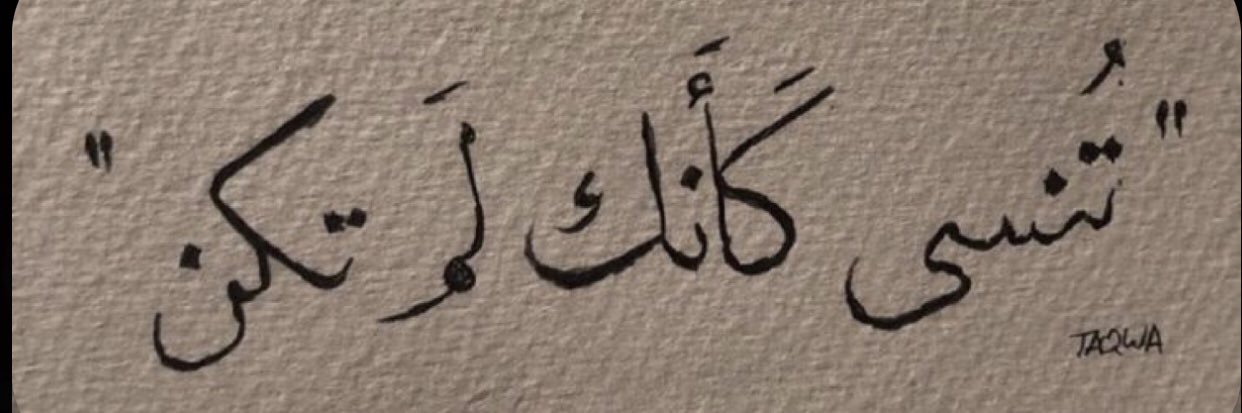 "تُنسى كَأَنك لَم تكن"
TAQWA